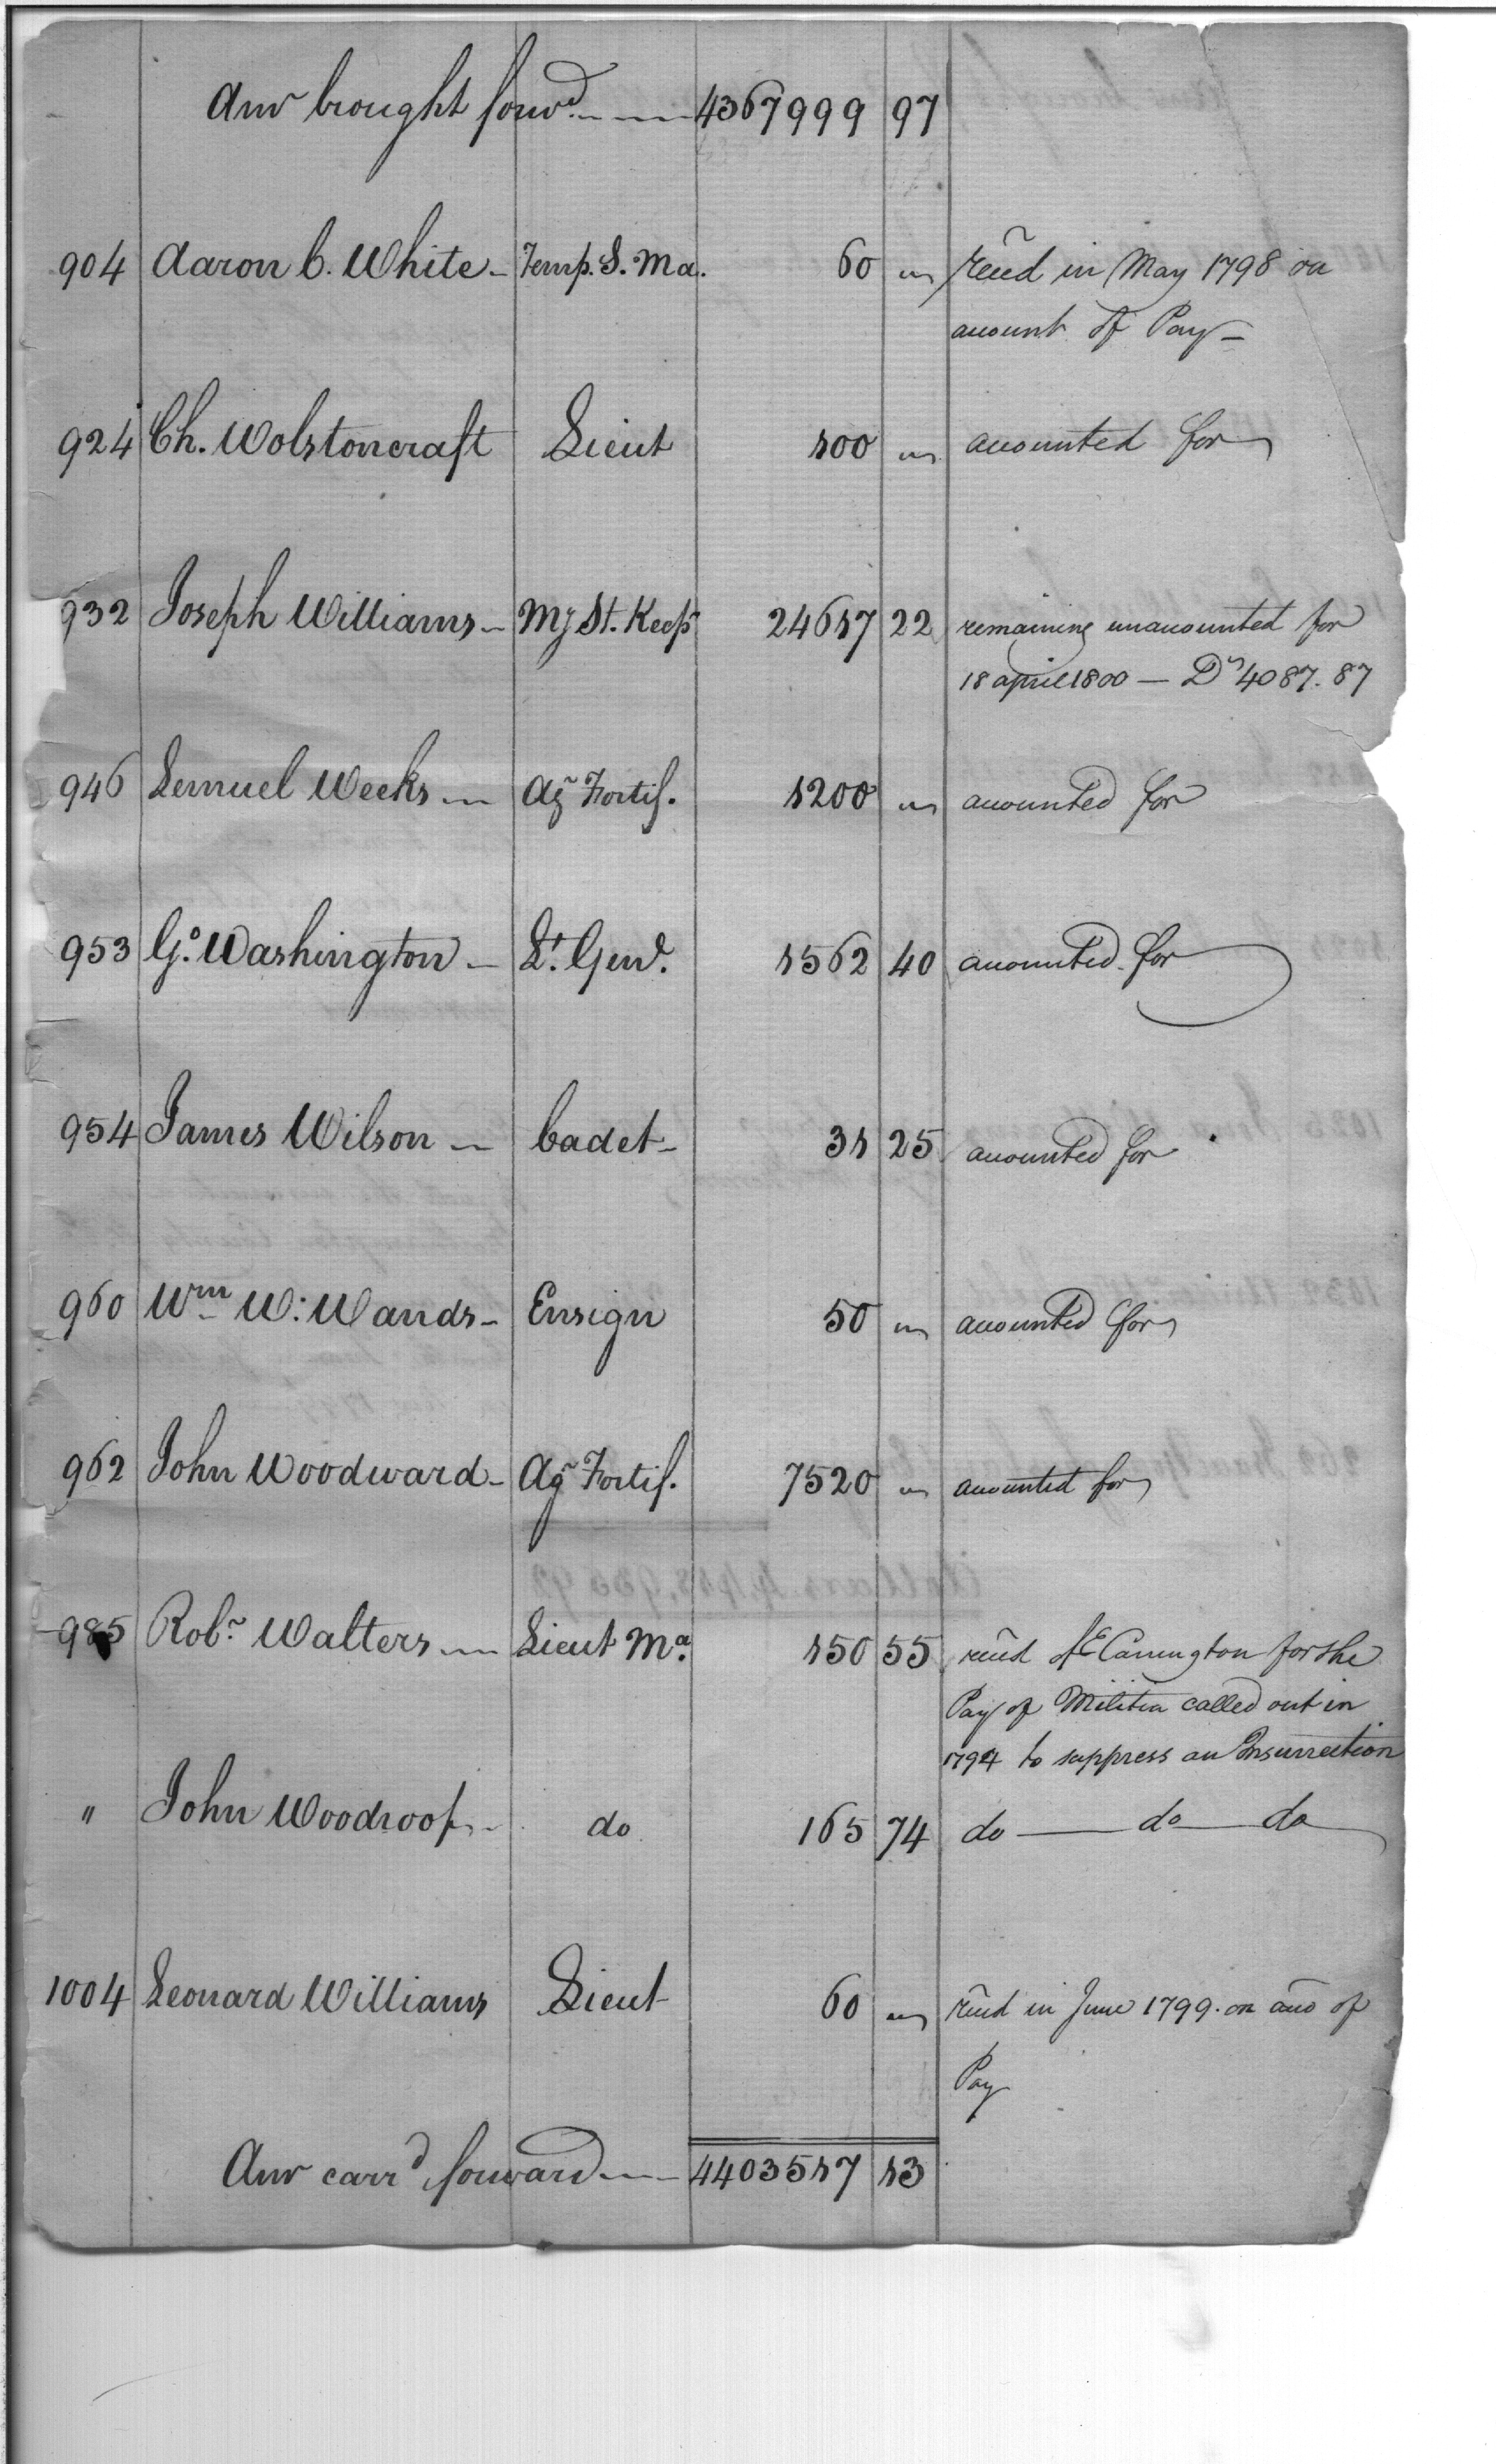 Amt brought forwd 4367999 97
904 Aaron C. White Temp. S. Ma. 60 " recd in May 1798 on
account of Pay
924 Ch. Wolstoncraft Lieut 100 " accounted for
932 Joseph Williams My St. Keepr 24617 22 remaining unaccounted for
18 april 1800 — Ds 4087.87
946 Lemuel Weeks Ag Fortif. 1200 " accounted for
953 Go. Washington Lt. Genl. 1562 40 accounted for
954 James Wilson Cadet 31 25 accounted for
960 Wm W: Wands Ensign 50 " accounted for
962 John Woodward Ag Fortif. 7520 " accounted for
985 Robt Walters Lieut Ma. 150 55 recd of E Carrington for the
Pay of Militia called out in
1794 to suppress an Insurrection
" John Woodroof do 165 74 do — do — do
1004 Leonard Williams Lieut 60 " recd in June 1799. on acco of
Pay
Amt carrd forward 4403517 13